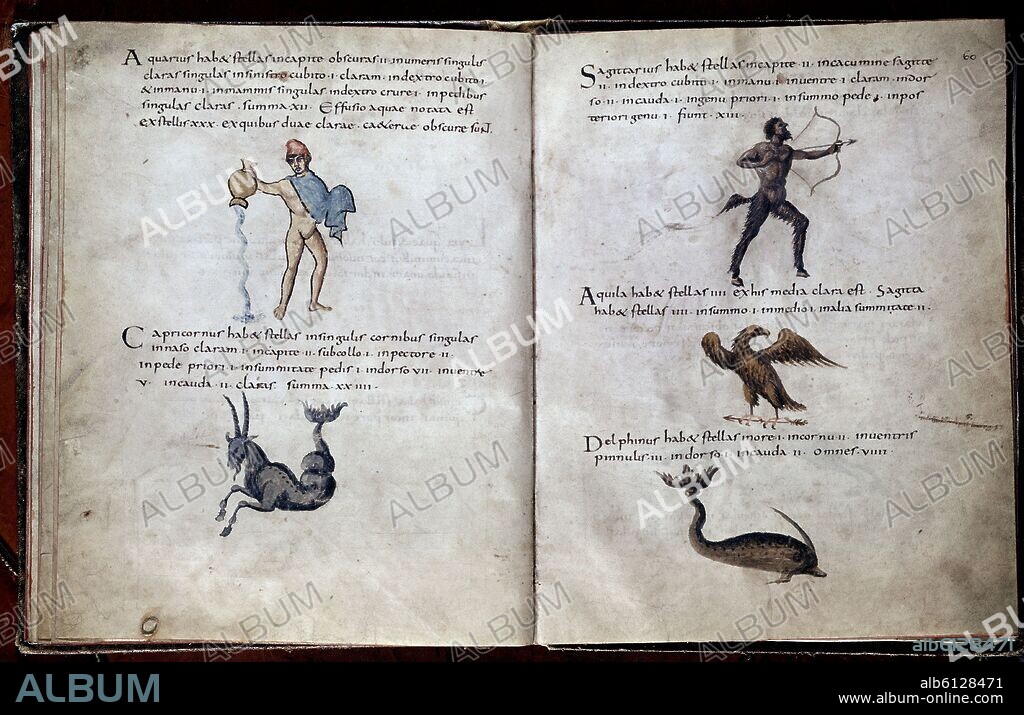 Aquarius hab& stellas incapite obscuras·ii·inumeris singulas
claras singulas insinistro cubito·i·claram·indextro cubito·i·
&inmanu·i·inmammis singulas indextro crure·i·inpedibus
singulas claras·summa xii· Effusio aquae notata est
exstellis xxx·exquibus duae clarae·ca&erae obscurae sunt·
Capricornus hab& stellas insingulis cornibus singulas
innaso claram·i·incapite·ii·subcollo·i·inpectore·ii·
inpede priori·i·insummitate pedis·i·indorso vii·inventre
v·incauda·ii·claras summa·xxiiii·
60
Sagittarius hab& stellas incapite·ii·incacumine sagitte
ii·indextro cubito·i·inmanu·i·inventre·i·claram·indor
so·ii·incauda·i·ingenu priori·i·insummo pede·i·inpos
teriori genu·i·fiunt·xiii·
Aquila hab& stellas iiii·exhis media clara est·Sagitta
hab& stellas iiii·insummo·i·inmedio·i·inalia summitate·ii·
Delphinus hab& stellas inore·i·incornu·ii·inventris
pinnulis·iii·indorso·i·incauda·ii·omnes·viiii·
ALBUM
alb6128471
ALBUM
alb6128471
www.album-online.com